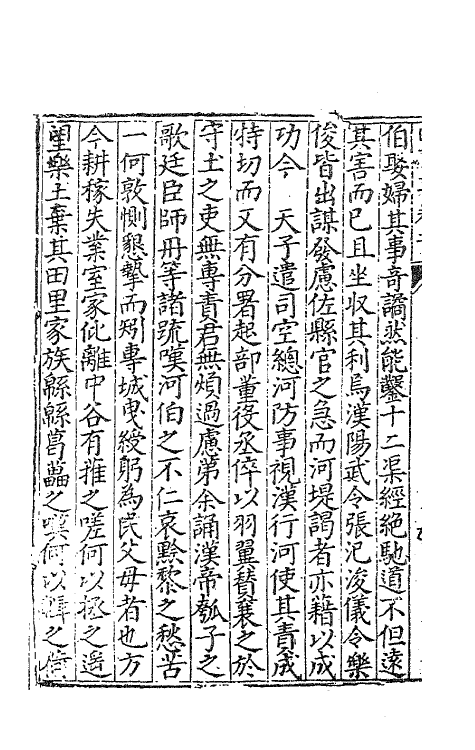 伯娶婦其事奇譎然能鑿十二渠經絶馳道不但遠
其害而已且坐収其利焉漢陽武令張汜浚儀令樂
俊皆出謀發慮佐縣官之急而河堤謁者亦籍以成
功今　天子遣司空總河防事視漢行河使其責成
特切而又有分署起部董役丞倅以羽翼賛襄之於
守土之吏無專責君無煩過慮第余誦漢帝瓠子之
歌廷臣師丹等諸疏嘆河伯之不仁哀黔黎之愁苦
一何敦惻懇摯而矧專城曳綬躬為民父母者也方
今耕稼失業室家仳離中谷有蓷之嗟何以拯之遥
望樂土棄其田里家族緜緜葛藟之嘆何以輯之